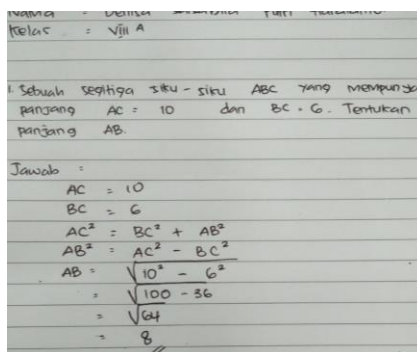 Kelas : VIII A
1. Sebuah segitiga siku-siku ABC yang mempunya
panjang AC = 10 dan BC = 6. Tentukan
panjang AB.
Jawab :
AC = 10
BC = 6
AC² = BC² + AB²
AB² = AC² - BC²
AB = √10² - 6²
= √100 - 36
= √64
= 8